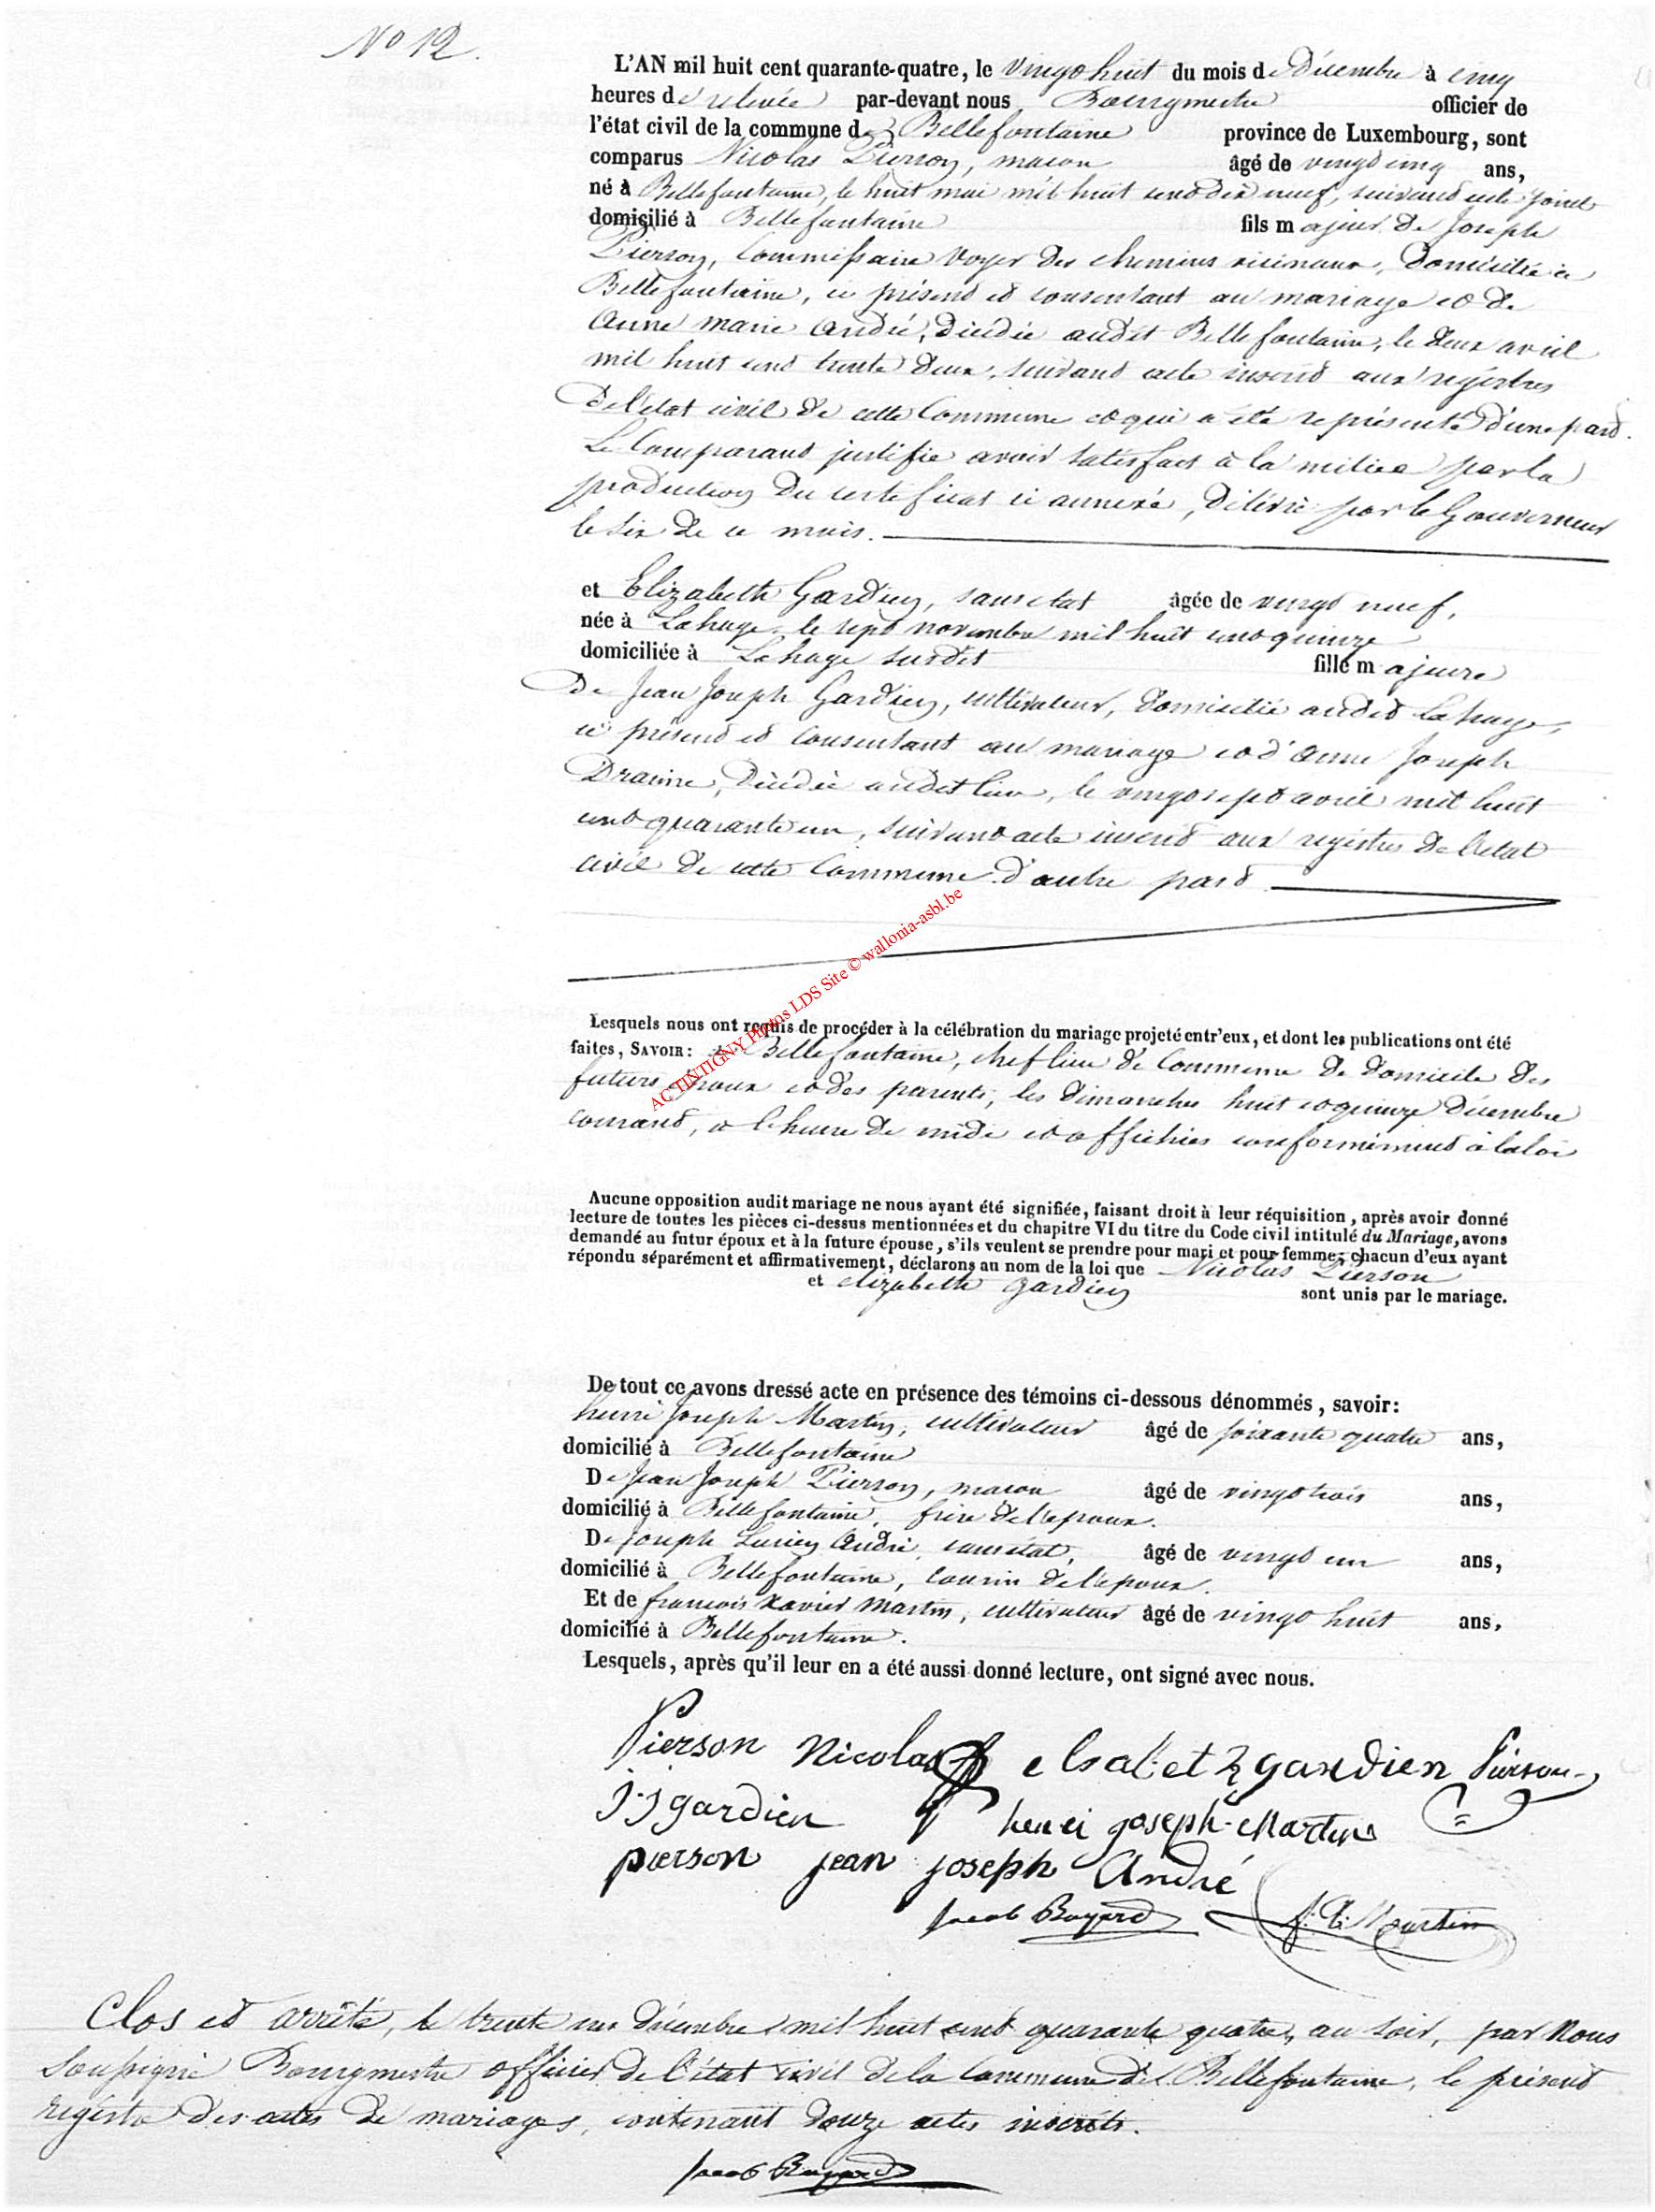 No 12.
L'AN mil huit cent quarante-quatre, le vingt huit du mois de Décembre à cinq
heures de relevée par-devant nous Bourgmestre officier de
l'état civil de la commune de Bellefontaine province de Luxembourg, sont
comparus Nicolas Pierson, macon âgé de vingt cinq ans,
né à Bellefontaine, le huit mai mil huit cent dix neuf, suivant acte joint
domicilié à Bellefontaine fils majeur de Joseph
Pierson, Commissaire voyer des chemins vicinaux, Domicilié à
Bellefontaine, ci présent et consentant au mariage et de
Anne Marie André, Décédée audit Bellefontaine, le deux avril
mil huit cent trente deux, suivant acte inscrit aux registres
de l'état civil de cette Commune et qui a été représenté d'une part.
Le Comparant justifie avoir satisfait à la milice par la
production du certificat ci annexé, délivré par le Gouverneur
le six de ce mois.
et Elizabeth Gardien, sans état âgée de vingt neuf,
née à Lahage, le sept novembre mil huit cent quinze
domiciliée à Lahage susdit fille majeure
de Jean Joseph Gardien, cultivateur, domicilié audit Lahage,
ci présent et consentant au mariage et d'Anne Joseph
Draime, décédée audit lieu, le vingt sept avril mil huit
cent quarante un, suivant acte inscrit aux registres de l'état
civil de cette Commune d'autre part
ACTINTIGNY Photos LDS Site © wallonia-asbl.be
Lesquels nous ont requis de procéder à la célébration du mariage projeté entr'eux, et dont les publications ont été
faites, SAVOIR: à Bellefontaine, chef lieu de Commune de domicile des
futurs époux et des parents, les dimanches huit et quinze Décembre
courant, à l'heure de midi et affichées conformément à la loi
Aucune opposition audit mariage ne nous ayant été signifiée, faisant droit à leur réquisition, après avoir donné
lecture de toutes les pièces ci-dessus mentionnées et du chapitre VI du titre du Code civil intitulé du Mariage, avons
demandé au futur époux et à la future épouse, s'ils veulent se prendre pour mari et pour femme; chacun d'eux ayant
répondu séparément et affirmativement, déclarons au nom de la loi que Nicolas Pierson
et elizabeth gardien sont unis par le mariage.
De tout ce avons dressé acte en présence des témoins ci-dessous dénommés, savoir:
henri Joseph Martin, cultivateur âgé de soixante quatre ans,
domicilié à Bellefontaine
De Jean Joseph Pierson, macon âgé de vingt trois ans,
domicilié à Bellefontaine, frère de l'epoux.
De Joseph Lucien André, sans état, âgé de vingt un ans,
domicilié à Bellefontaine, Cousin de l'epoux.
Et de françois Xavier Martin, cultivateur âgé de vingt huit ans,
domicilié à Bellefontaine.
Lesquels, après qu'il leur en a été aussi donné lecture, ont signé avec nous.
Pierson Nicolas elsabet gardien Pierson
j.j gardien henri joseph Martin
pierson jean joseph André
Jacob Bayard f. X. Martin
Clos et arrêté, le trente un Décembre mil huit cent quarante quatre, au soir, par Nous
soussigné Bourgmestre officier de l'état civil de la Commune de Bellefontaine, le présent
registre des actes de mariages, contenant douze actes inscrits.
Jacob Bayard